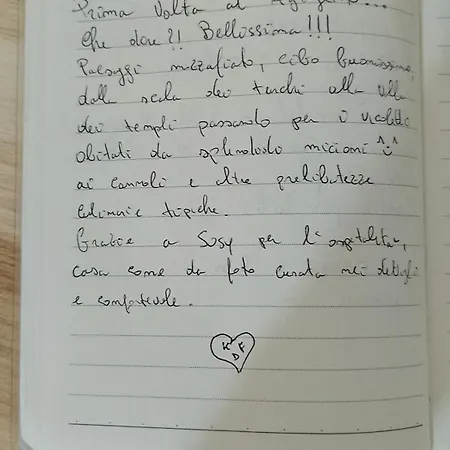 Prima volta ad
Che dire?! Bellissima!!!
Paesaggi mozzafiato, cibo buonissimo,
dalla scala dei turchi alla valle
dei templi passando per i vicoletti
abitati da splendosdo micioni ^^
ai cannoli e altre prelibatezze
culinarie tipiche.
Grazie a Sosy per l'ospitalità,
casa come da foto curata nei dettagli
e confortevole.
K F
D